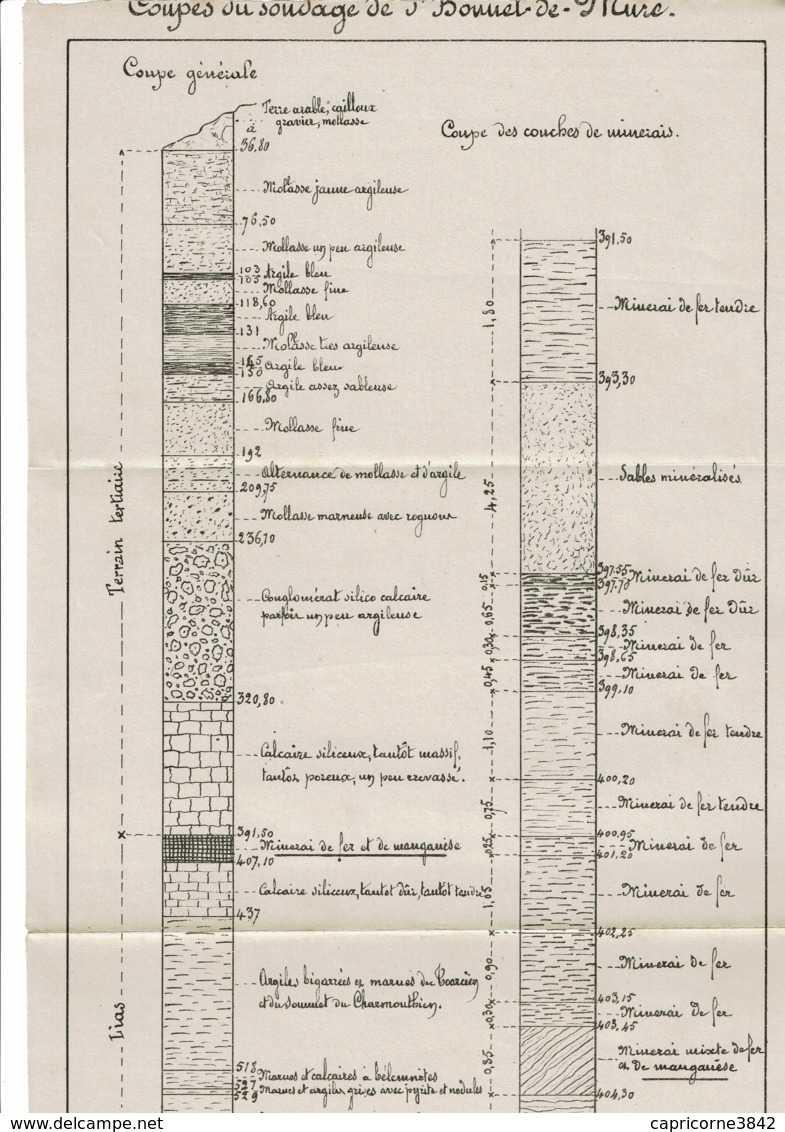 Coupes du sondage de St Bonnet-de-Mure.
Coupe générale
Terre arable, cailloux
gravier, mollasse
à
36,80
Mollasse jaune argileuse
76,50
Mollasse un peu argileuse
103
Argile bleu
105
Mollasse fine
118,60
Argile bleu
131
Mollasse très argileuse
Argile bleu
150
Argile assez sableuse
166,80
Mollasse fine
192
Alternance de mollasse et d'argile
209,75
Mollasse marneuse avec rognons
236,10
Conglomérat silico calcaire
parfois un peu argileuse
320,80
Calcaire siliceux, tantôt massif,
tantôt poreux, un peu crevassé.
391,50
Minerai de fer et de manganèse
407,10
Calcaire siliceux, tantôt dur, tantôt tendre
437
Argiles bigarrées et marnes du Toarcien
et du sommet du Charmouthien.
518
Marnes et calcaires à bélemnites
527
Marnes et argiles grises avec pyrite et nodules
529
Terrain tertiaire
Lias
Coupe des couches de minerais.
391,50
1,80
Minerai de fer tendre
393,30
4,25
Sables minéralisés
397,55
0,15
Minerai de fer Dûr
397,70
0,65
Minerai de fer Dûr
398,35
0,30
Minerai de fer
398,65
0,45
Minerai de fer
399,10
1,10
Minerai de fer tendre
400,20
0,75
Minerai de fer tendre
400,95
0,25
Minerai de fer
401,20
1,05
Minerai de fer
402,25
0,90
Minerai de fer
403,15
0,30
Minerai de fer
403,45
0,85
Minerai mixte de fer
et de manganèse
404,30
www.delcampe.net
capricorne3842